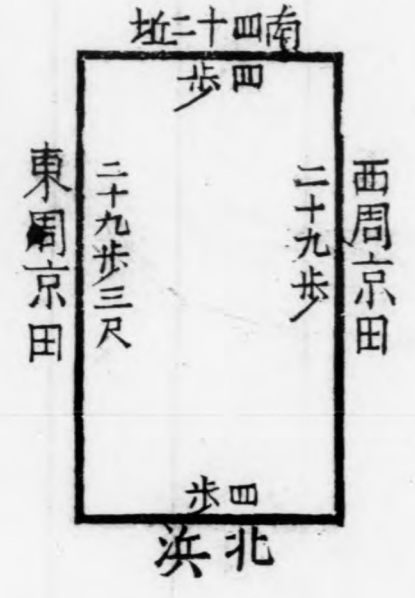 南四十二坵
四步
西周京田
二十九步
二十九步三尺
東周京田
四步
北浜